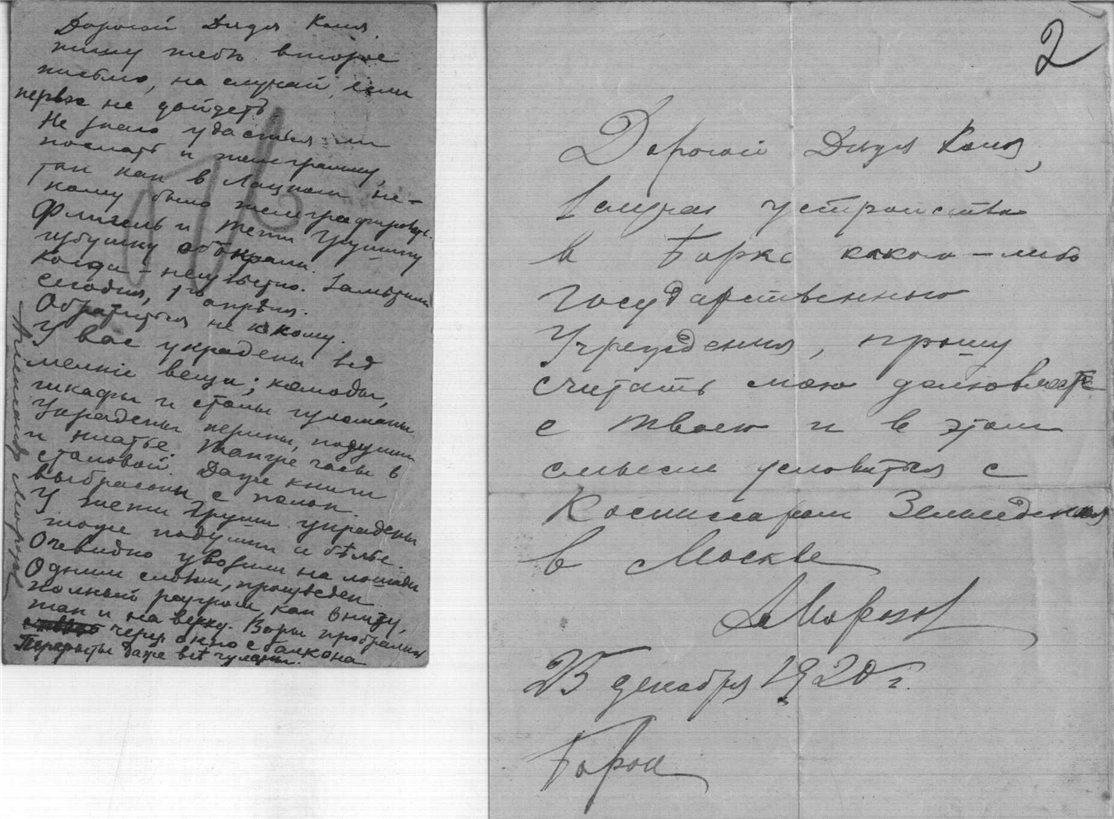 Дорогой Дядя Коля.
пишу тебѣ второе
письмо, на случай, если
первое не дойдетъ
Не знаю удастся ли
послать и телеграмму,
так как в Лацком не-
кому было телеграфировать.
Флигель и тети Грушину
избушку обокрали.
когда – неизвестно. Заметили
сегодня, 1го апреля.
Обратиться не к кому.
У вас украдены всѣ
мелкие вещи; комоды,
шкафы и столы взломаны.
Украдены перины, подушки
и платье. Также часы в
столовой. Даже книги
выбрасоны с полок.
У тети Груши украдены
тоже подушки и бѣлье.
Очевидно увозили на лошади
Одним словом, произведен
полный разгром, как внизу,
так и на верху. Воры пробрались
через окно с балкона
Перерыты даже всѣ чуланы.
Александр Морозов
2
Дорогой Дядя Коля,
в случае устройства
в Борке какого-либо
Государственного
Учреждения, прошу
считать мою долю вместе
с твоею и в этом
смысле условиться с
Комиссаром Земледелия
в Москве
А Морозов
25 декабря 1920 г.
Борок